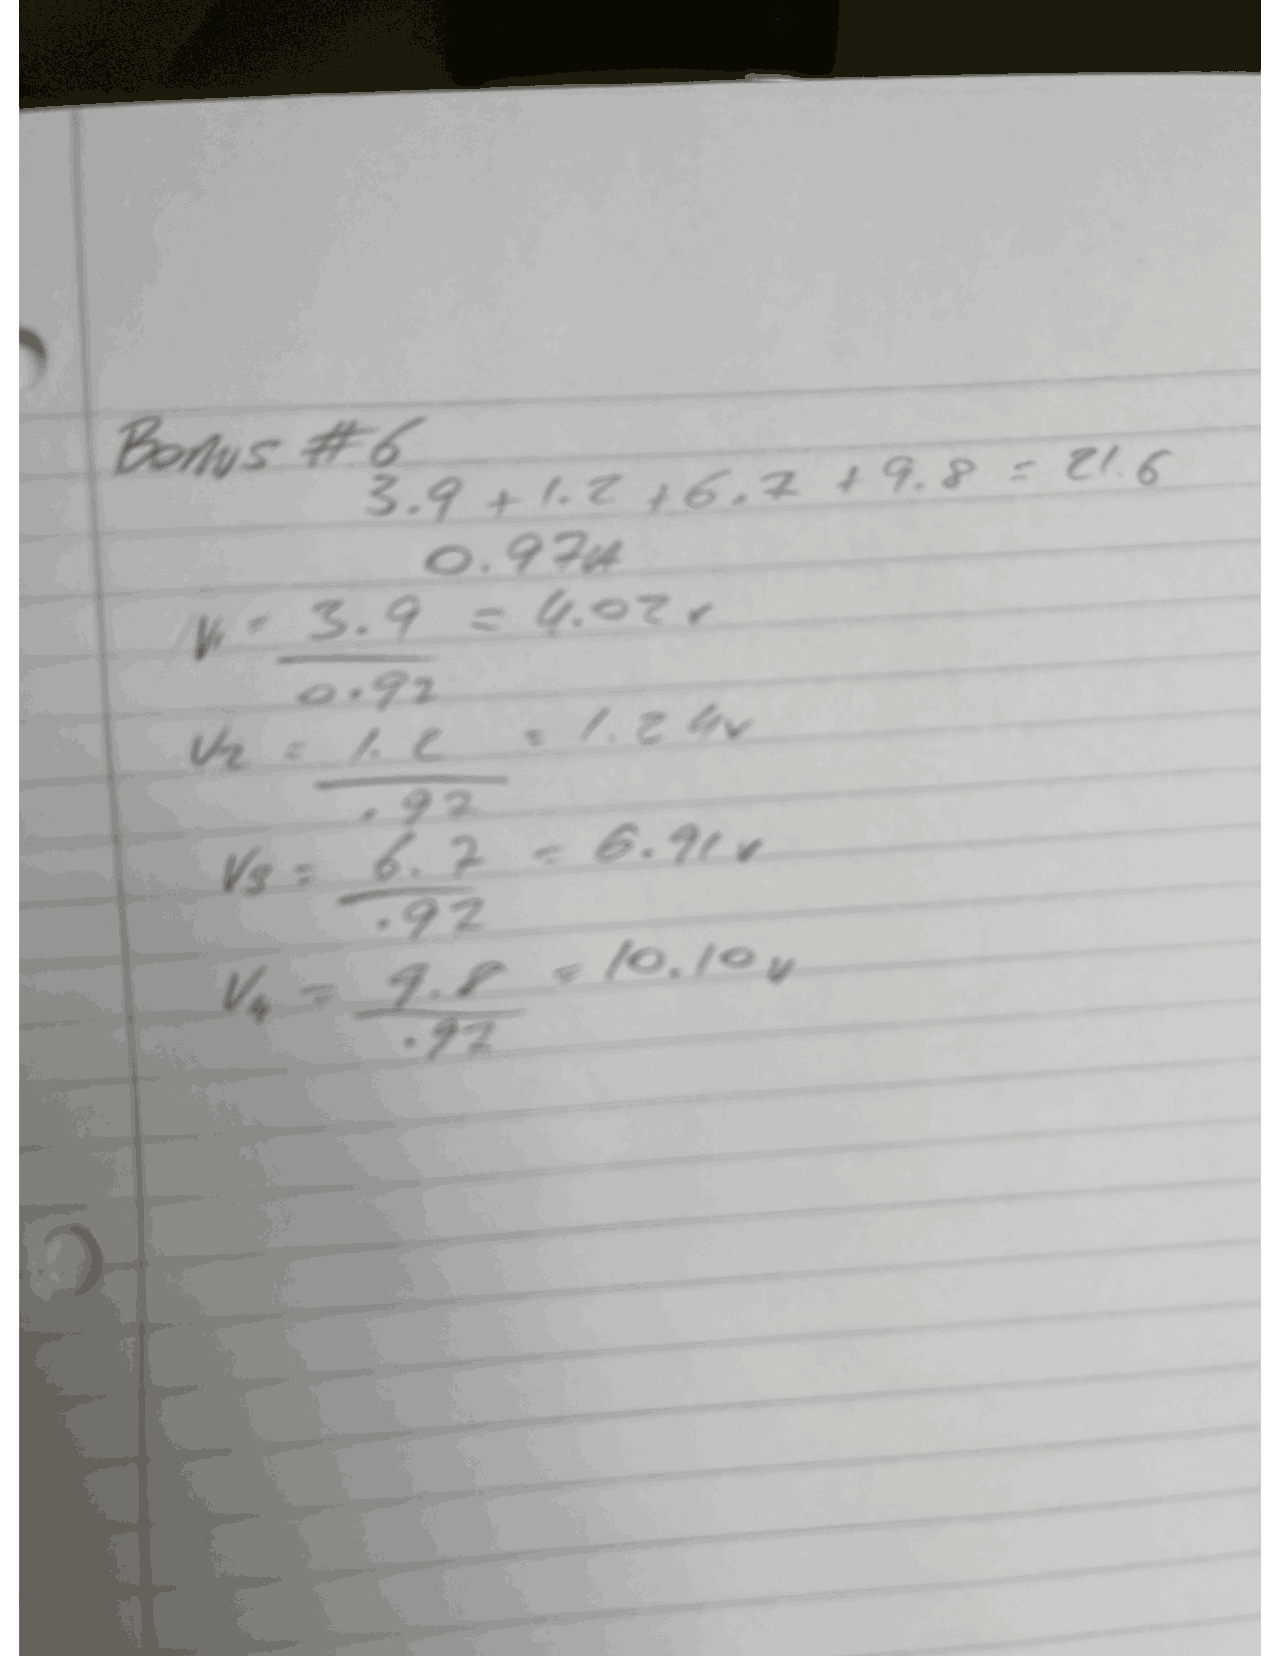 Bonus #6
3.9 + 1.2 + 6.7 + 9.8 = 21.6
0.97A
V1 = 3.9 = 4.02v
0.97
V2 = 1.2 = 1.24v
.97
V3 = 6.7 = 6.91v
.97
V4 = 9.8 = 10.10v
.97